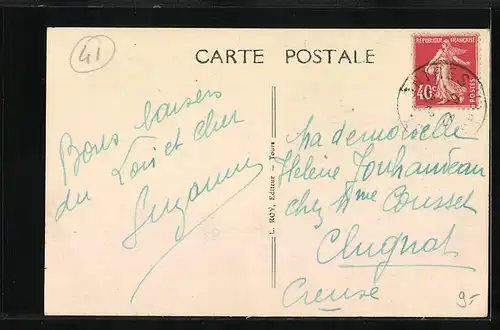 41
CARTE POSTALE
REPUBLIQUE FRANÇAISE
40c
POSTES
Bons baisers
du Loir et cher
Suzanne
L. ROY, Editeur - Tours
Mademoiselle
Hélène Jouhandeau
chez Mme Cousset
Clugnat
Creuse
9-